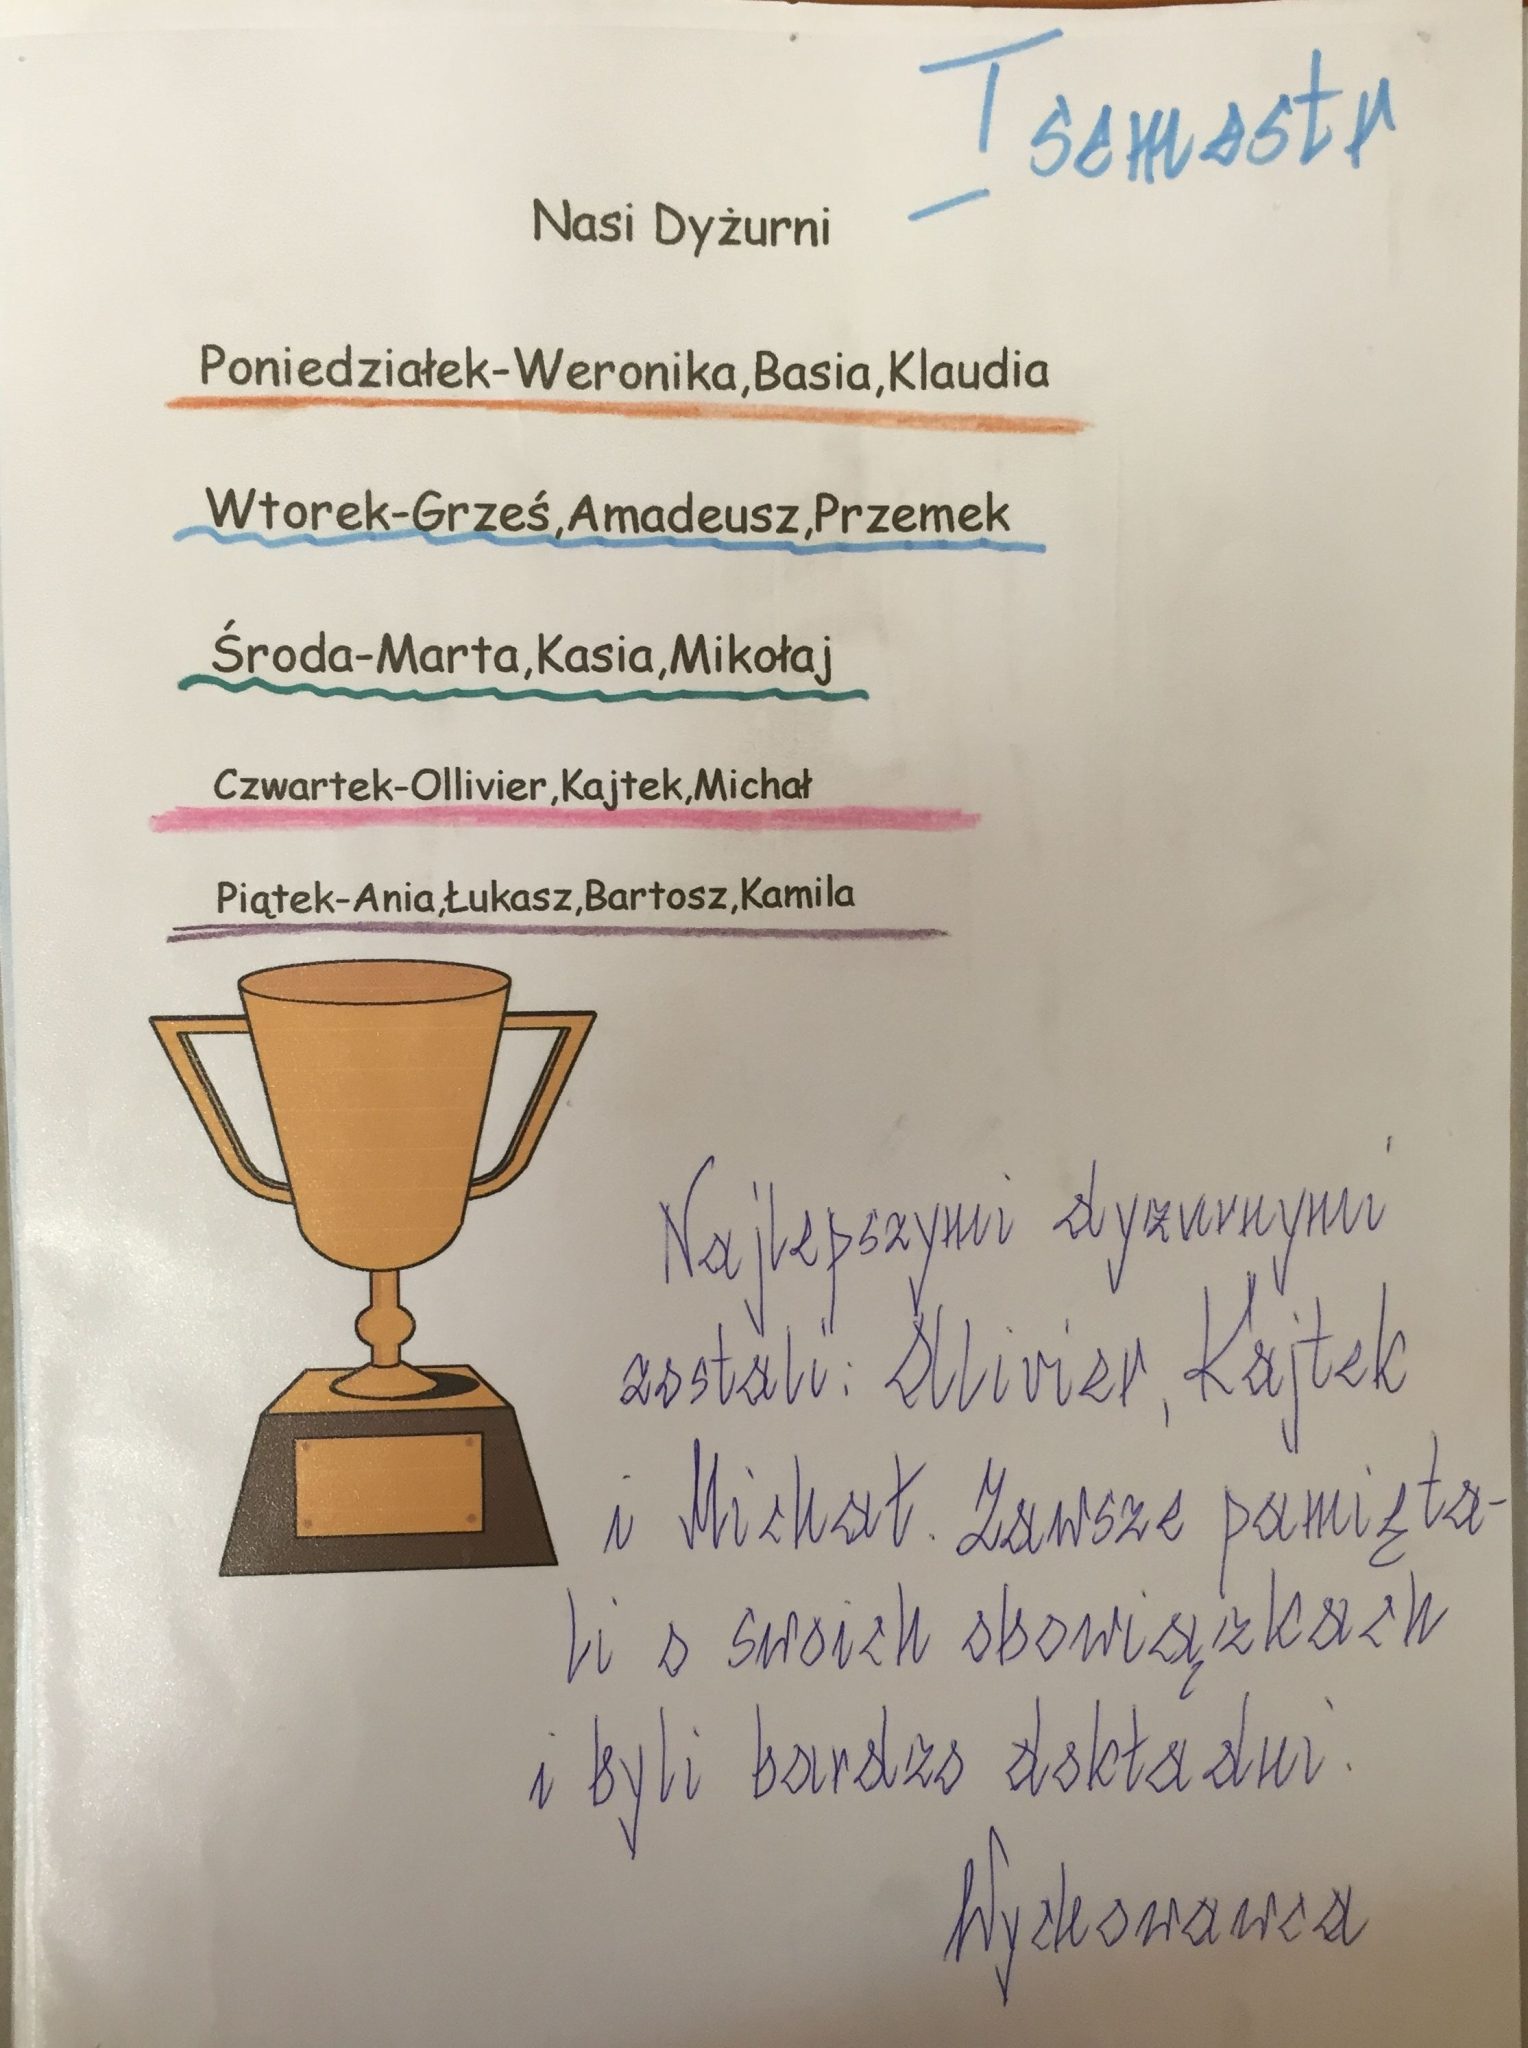 I semestr
Nasi Dyżurni
Poniedziałek-Weronika,Basia,Klaudia
Wtorek-Grześ,Amadeusz,Przemek
Środa-Marta,Kasia,Mikołaj
Czwartek-Ollivier,Kajtek,Michał
Piątek-Ania,Łukasz,Bartosz,Kamila
Najlepszymi dyzurnymi
zostali: Ollivier, Kajtek
i Michał. Zawsze pamięta-
li o swoich obowiązkach
i byli bardzo dokładni.
Wychowawca